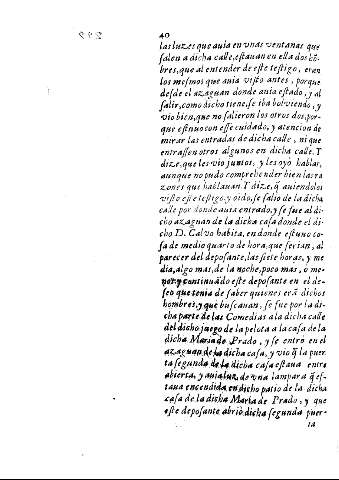 40
las luzes que auia en vnas ventanas que
salen a dicha calle, estauan en ella dos hō-
bres, que al entender de este testigo, eran
los mesmos que auia visto antes, porque
desde el azaguan donde auia estado, y al
salir, como dicho tiene, se iba boluiendo, y
vio bien, que no salieron los otros dos, por-
que estuuo con esse cuidado, y atencion de
mirar las entradas de dicha calle, ni que
entrassen otros algunos en dicha calle. Y
dize, que les vio juntos, y les oyò hablar,
aunque no pudo comprehender bien las ra
zones que hablauan. Y dize, q̃ auiendolos
visto este testigo, y oido, se salio de la dicha
calle por donde auia entrado, y se fue al di-
cho azaguan de la dicha casa donde el di-
cho D. Calvo habita, en donde estuuo co-
sa de medio quarto de hora, que serian, al
parecer del deposante, las siete horas, y me
dia, algo mas, de la noche, poco mas, o me-
nos, y continuādo este deposante en el de-
seo que tenia de saber quienes erā dichos
hombres, y que buscauan, se fue por la di-
cha parte de las Comedias a la dicha calle
del dicho juego de la pelota a la casa de la
dicha Maria de Prado, y se entrò en el
azaguan de la dicha casa, y vio q̃ la puer
ta segunda de la dicha casa estaua entre
abierta, y auia luz de vna lampara q̃ es-
taua encendida en dicho patio de la dicha
casa de la dicha Maria de Prado, y que
este deposante abriò dicha segunda puer-
ta